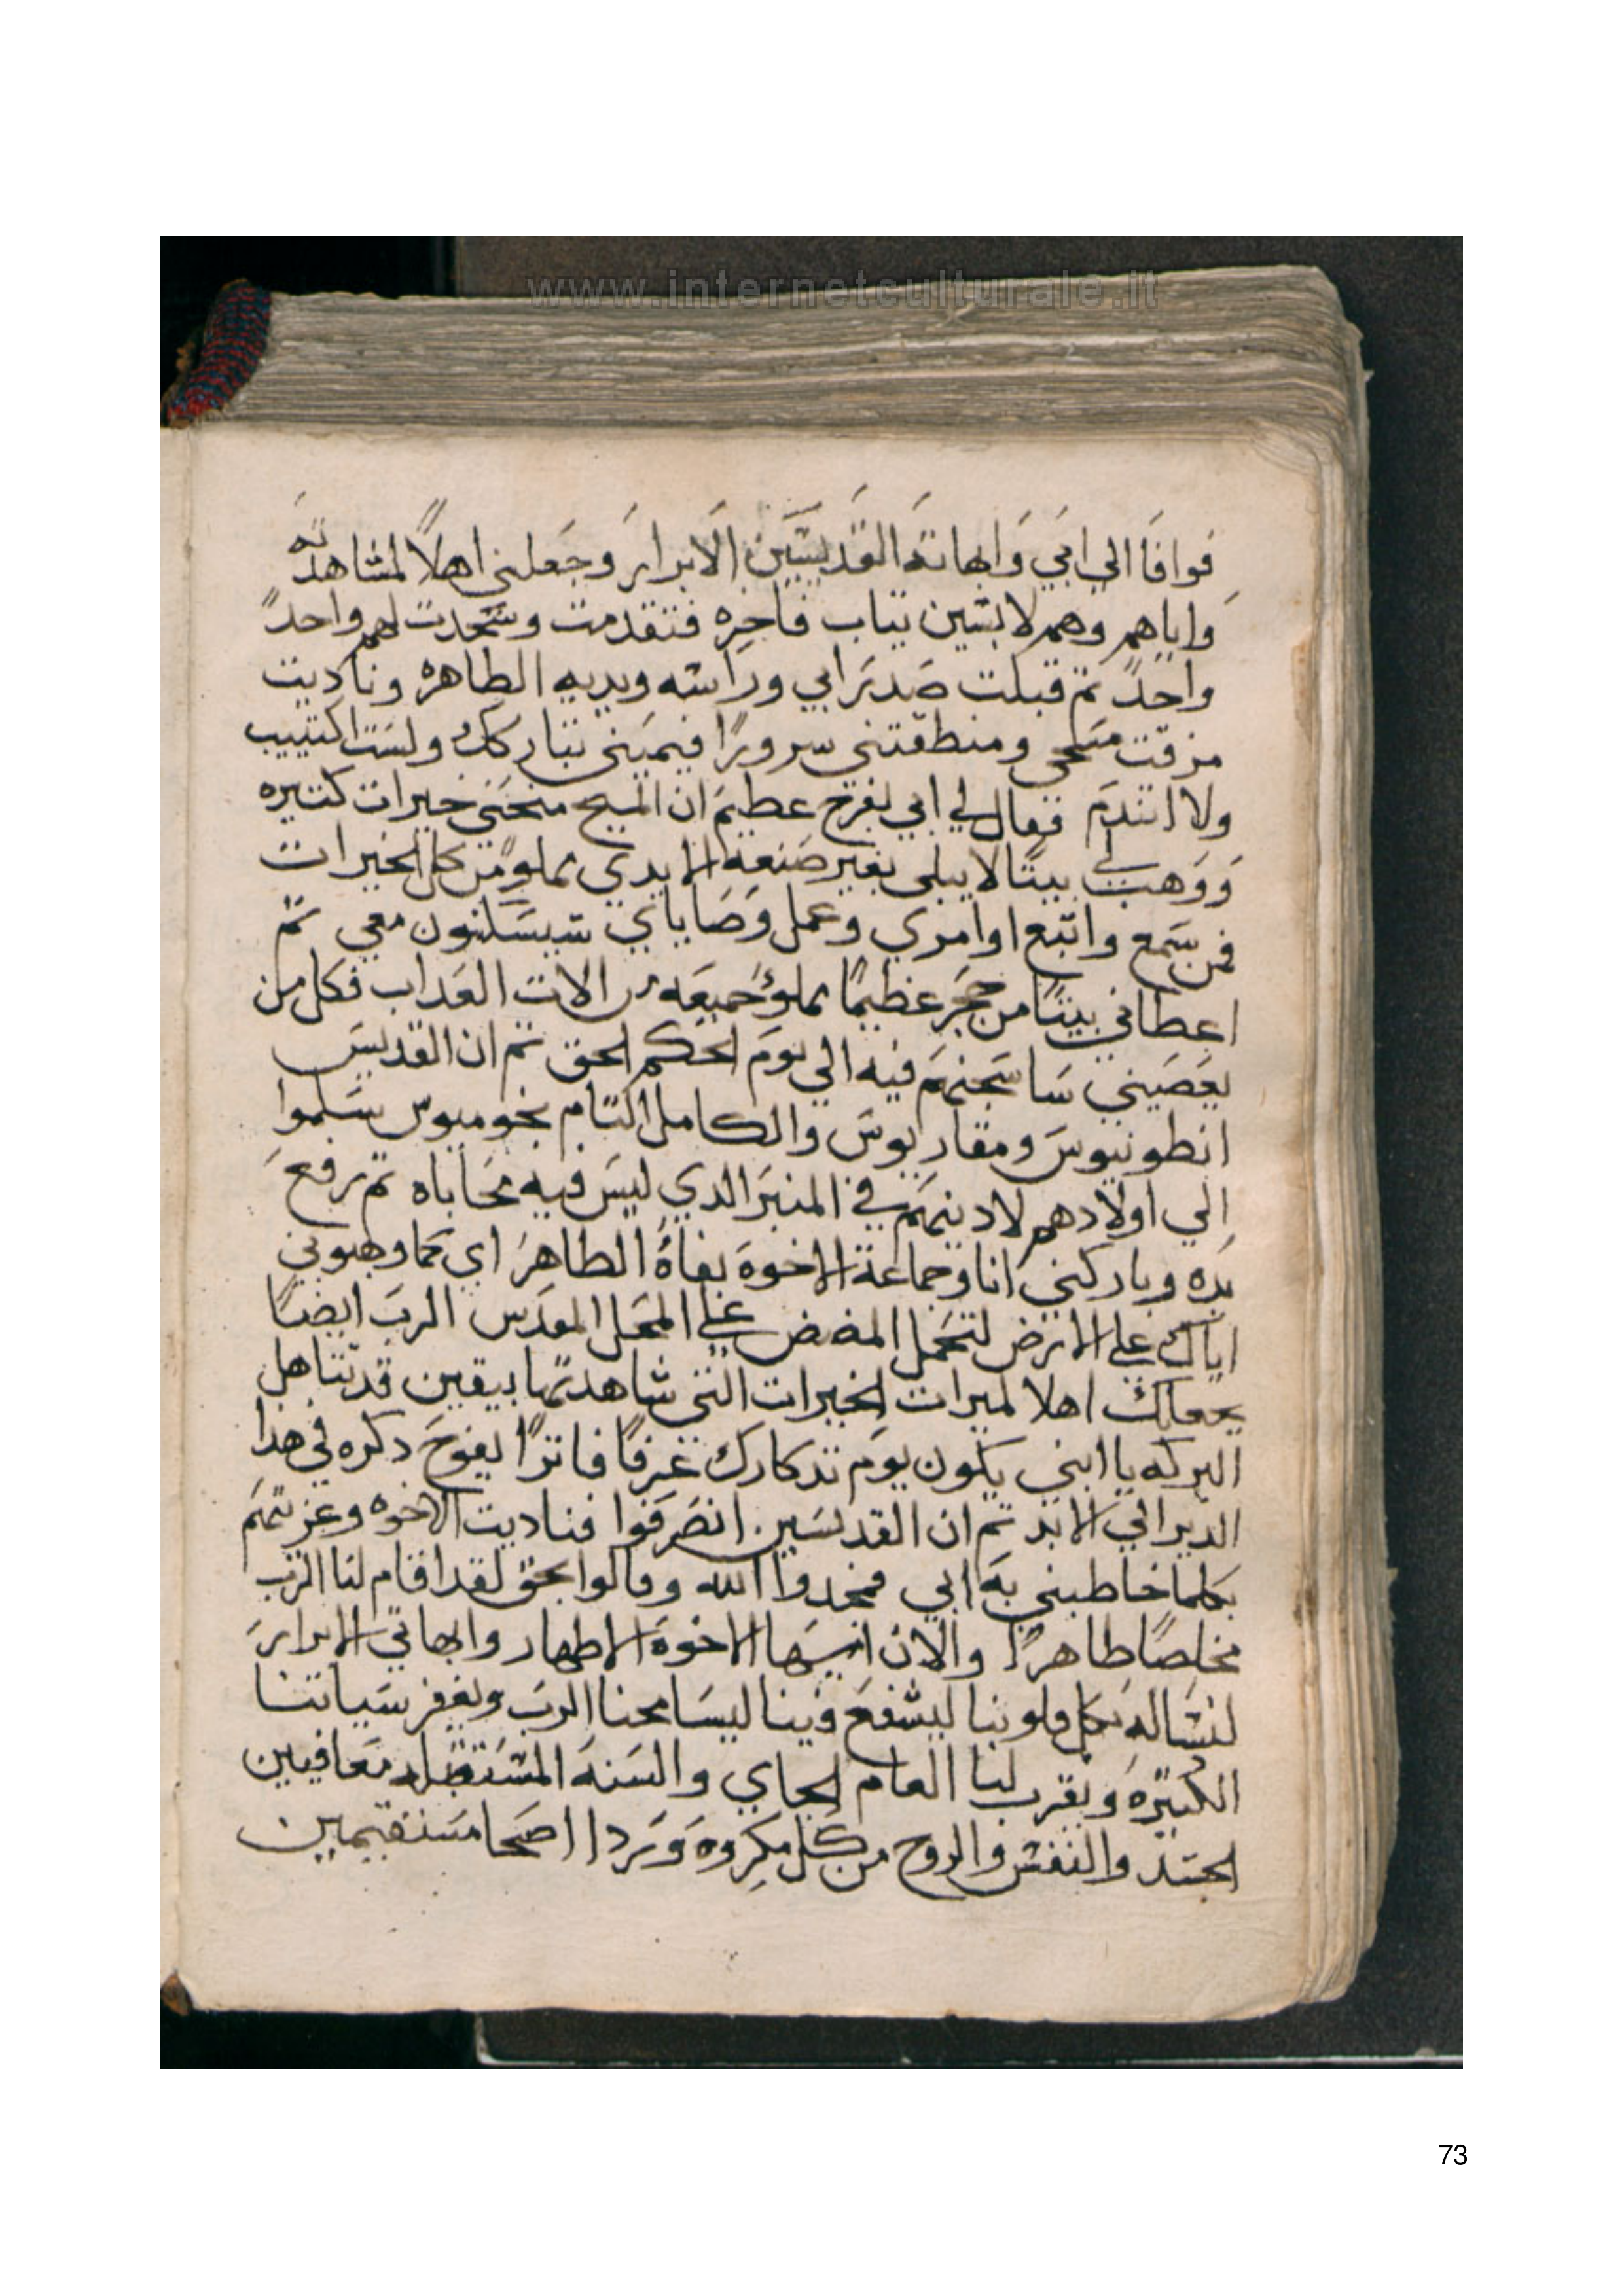 www.internetculturale.it
فوافا الي ابي وابهاته القديسين الابرار وجعلني اهلاً لمشاهدته
واياهم وهم لابسين تياب فاخره فتقدمت وسجدت لهم واحدً
واحدً تم قبلت صدر ابي وراسه ويديه الطاهره وناديت
مزقت مسحي ومنطقتني سرورًا فيميني تباركك ولست اكتييب
ولا اتندم فقال لي ابي بفرح عظيم ان المسيح منحني خيرات كتيره
ووهب لي بيتًا لا يبلي بغير صنعة الايدي مملو من كل الخيرات
فمن سمع واتبع اوامري وعمل وصاياي سيسكنون معي تم
اعطاني بيتًا من حجر عظيمًا مملو جميعه من الات العداب فكل من
يعصيني ساسجنهم فيه الي يوم الحكم الحق تم ان القديس
انطونيوس ومقاريوس والكامل التام بخوميوس سلموا
الي اولادهم لادينهم في المنبر الدي ليس فيه محاباه تم رفع
يده وباركني انا وجماعة الاخوة بفاهُ الطاهر اي كما وهبوني
اياك علي الارض لتحمل المضض علي المحل المقدس الرب ايضًا
يجعلك اهلا لميرات الخيرات التي شاهدتها بيقين قد تتاهل
البركه يا ابني يكون يوم تدكارك عرفًا فايزًا يفوح دكره في هدا
الدير الي الابد تم ان القديسين انصرفوا فناديت الاخوه وعزيتهم
بكلما خاطبني به ابي فمجدوا الله وقالوا بحق لقد اقام لنا الرب
مخلصًا طاهرًا والان ايها الاخوة الاطهار وابهاتي الابرار
لنساله بكل قلوبنا ليشفع فينا ليسامحنا الرب ويغفر سياتنا
الكبيرة ويقرب لنا العام الجاي والسنة المستقبله معافيين
الجسد والنفس والروح من كل مكروه وردا اصحا مستقيمين
73